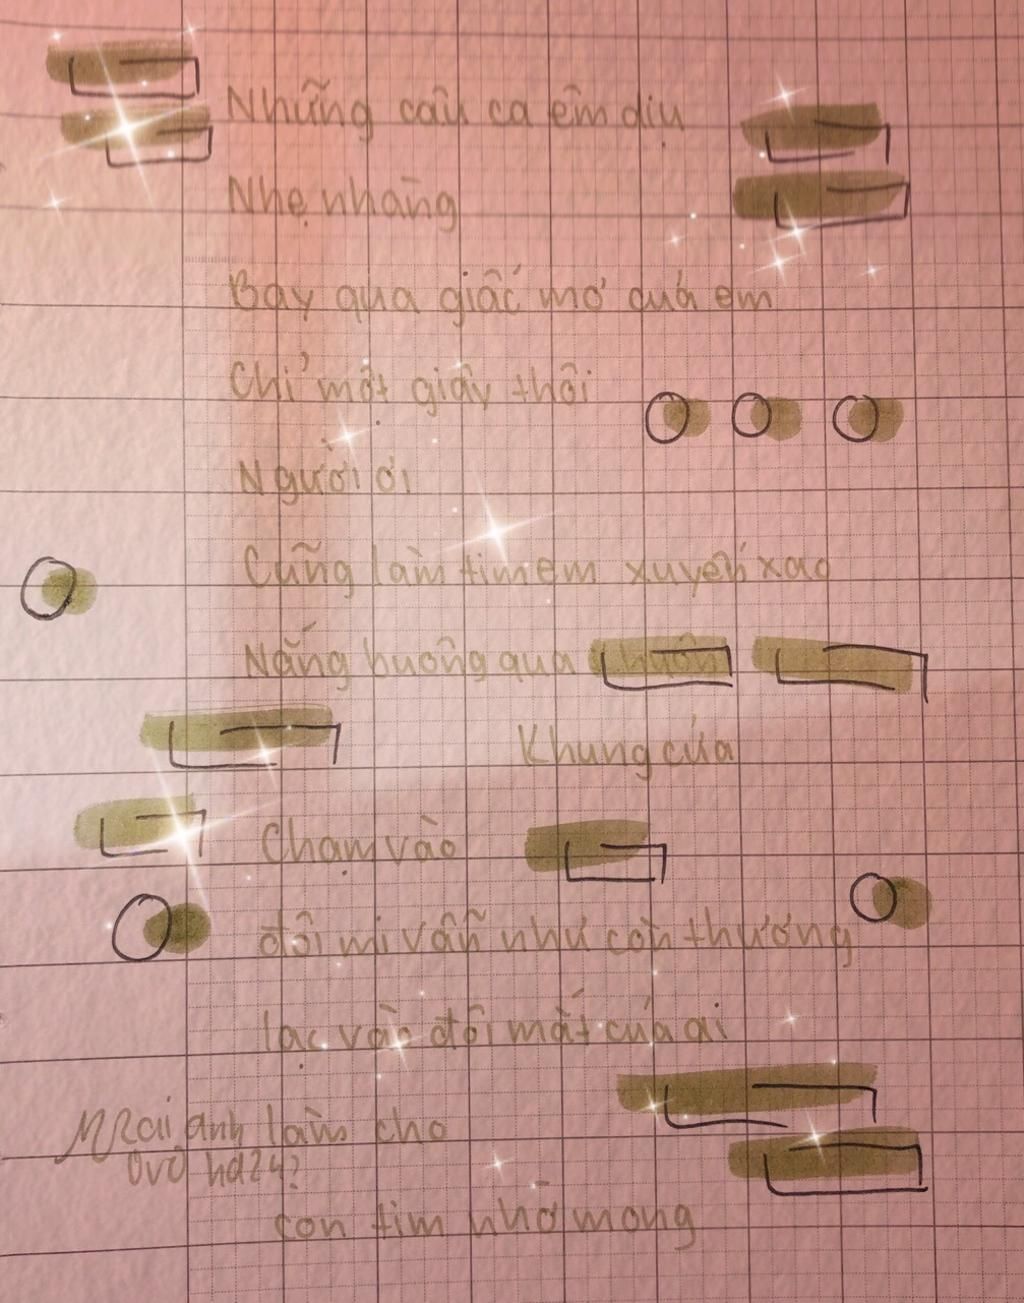 Những câu ca êm dịu
Nhẹ nhàng
Bay qua giấc mơ cuả em
Chỉ một giây thôi
Người ơi
Cũng làm tim em xuyến xao
Nắng buông qua
Khung cửa
Chạm vào
đôi mi vẫn như còn thương
lạc vào đôi mắt của ai
anh làm cho
con tim nhớ mong